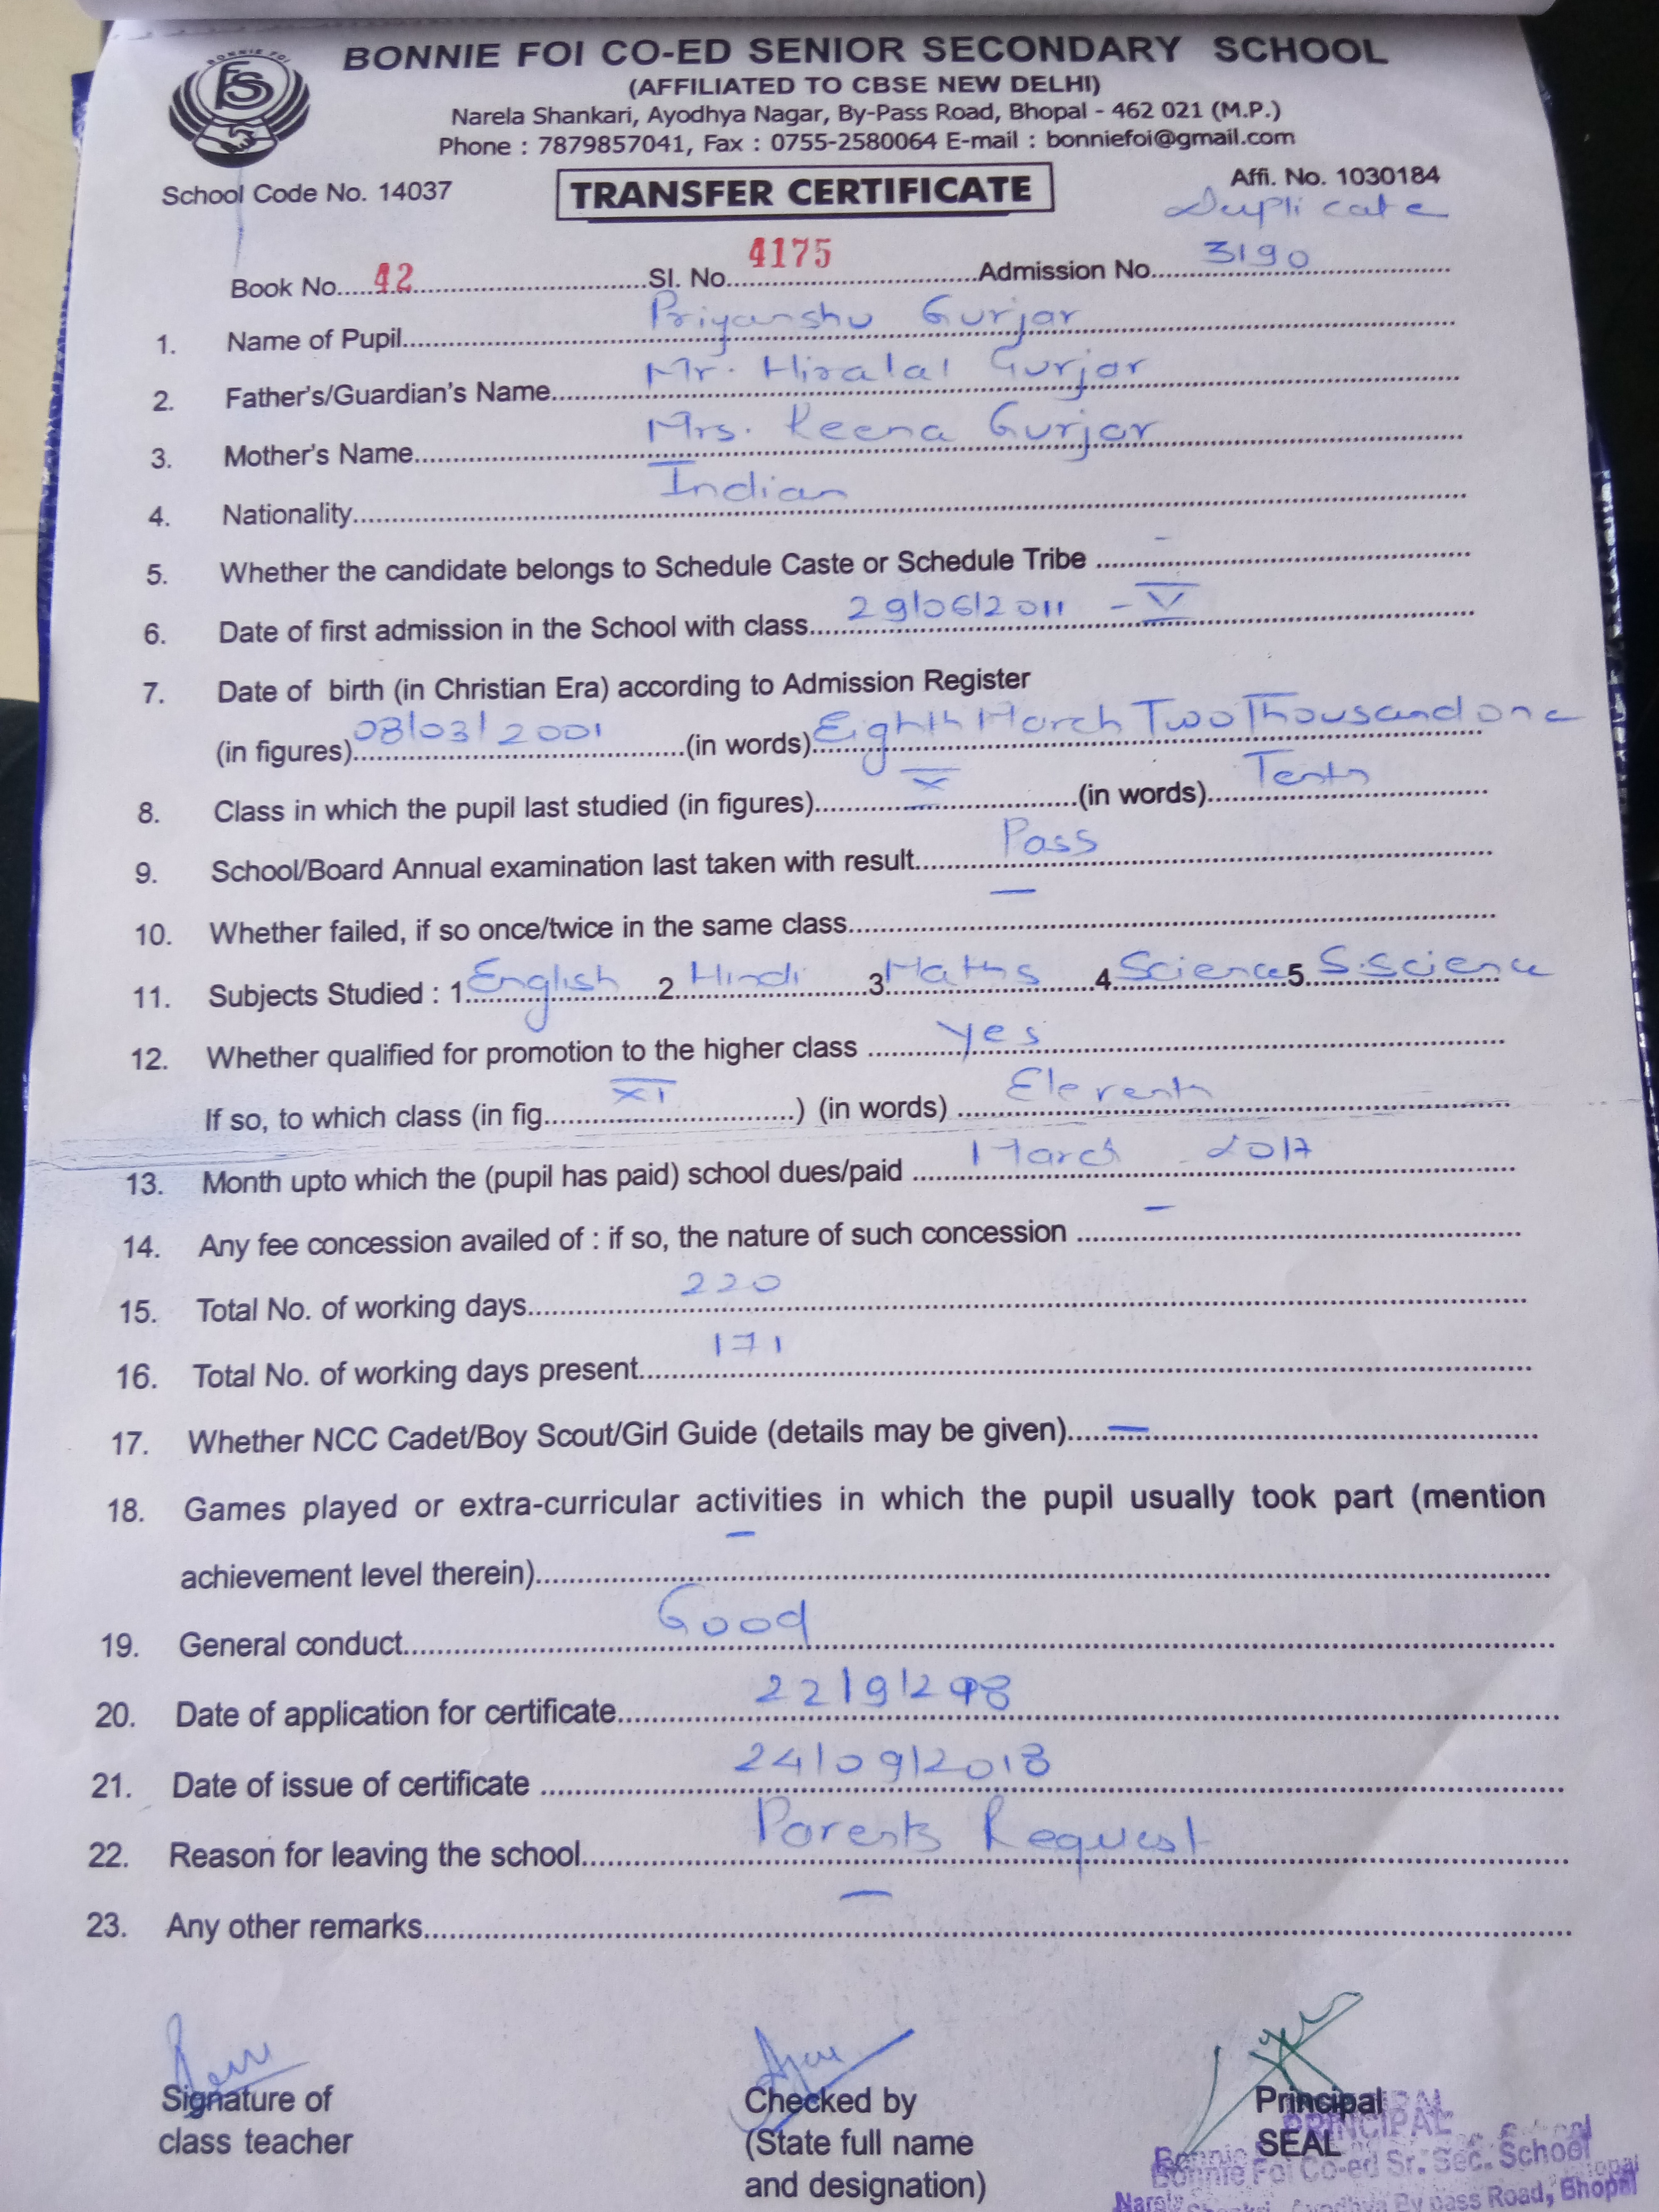 BONNIE FOI
FS
BONNIE FOI CO-ED SENIOR SECONDARY SCHOOL
(AFFILIATED TO CBSE NEW DELHI)
Narela Shankari, Ayodhya Nagar, By-Pass Road, Bhopal - 462 021 (M.P.)
Phone : 7879857041, Fax : 0755-2580064 E-mail : bonniefoi@gmail.com
School Code No. 14037 TRANSFER CERTIFICATE Affi. No. 1030184
Duplicate
Book No. 42 Sl. No. 4175 Admission No. 3190
1. Name of Pupil Priyanshu Gurjar
2. Father's/Guardian's Name Mr. Hiralal Gurjar
3. Mother's Name Mrs. Reena Gurjar
4. Nationality Indian
5. Whether the candidate belongs to Schedule Caste or Schedule Tribe -
6. Date of first admission in the School with class 29/06/2011 - V
7. Date of birth (in Christian Era) according to Admission Register
(in figures) 08/03/2001 (in words) Eighth March Two Thousand one
8. Class in which the pupil last studied (in figures) X (in words) Tenth
9. School/Board Annual examination last taken with result Pass
10. Whether failed, if so once/twice in the same class —
11. Subjects Studied : 1 English 2 Hindi 3 Maths 4 Science 5 S.science
12. Whether qualified for promotion to the higher class yes
If so, to which class (in fig. XI ) (in words) Eleventh
13. Month upto which the (pupil has paid) school dues/paid March 2017
14. Any fee concession availed of : if so, the nature of such concession —
15. Total No. of working days 220
16. Total No. of working days present 171
17. Whether NCC Cadet/Boy Scout/Girl Guide (details may be given) —
18. Games played or extra-curricular activities in which the pupil usually took part (mention
achievement level therein) —
19. General conduct Good
20. Date of application for certificate 22/9/2018
21. Date of issue of certificate 24/09/2018
22. Reason for leaving the school Parents Request
23. Any other remarks —
Signature of Checked by Principal
class teacher (State full name SEAL
and designation)
PRINCIPAL
Bonnie Foi Co-ed Sr. Sec. School
Ayodhya By pass Road, Bhopal